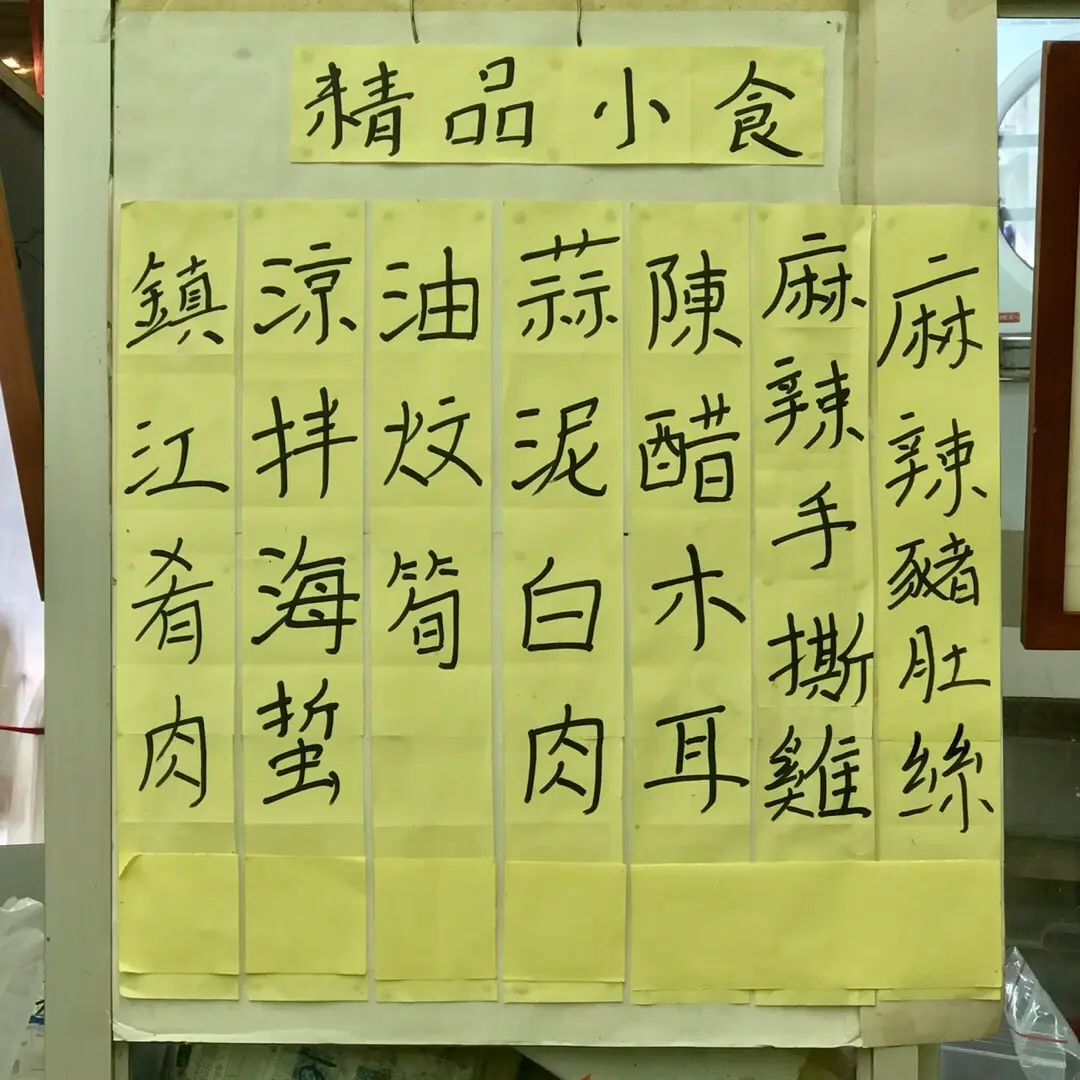 精品小食
麻辣豬肚絲
麻辣手撕雞
陳醋木耳
蒜泥白肉
油炆筍
涼拌海蜇
鎮江肴肉